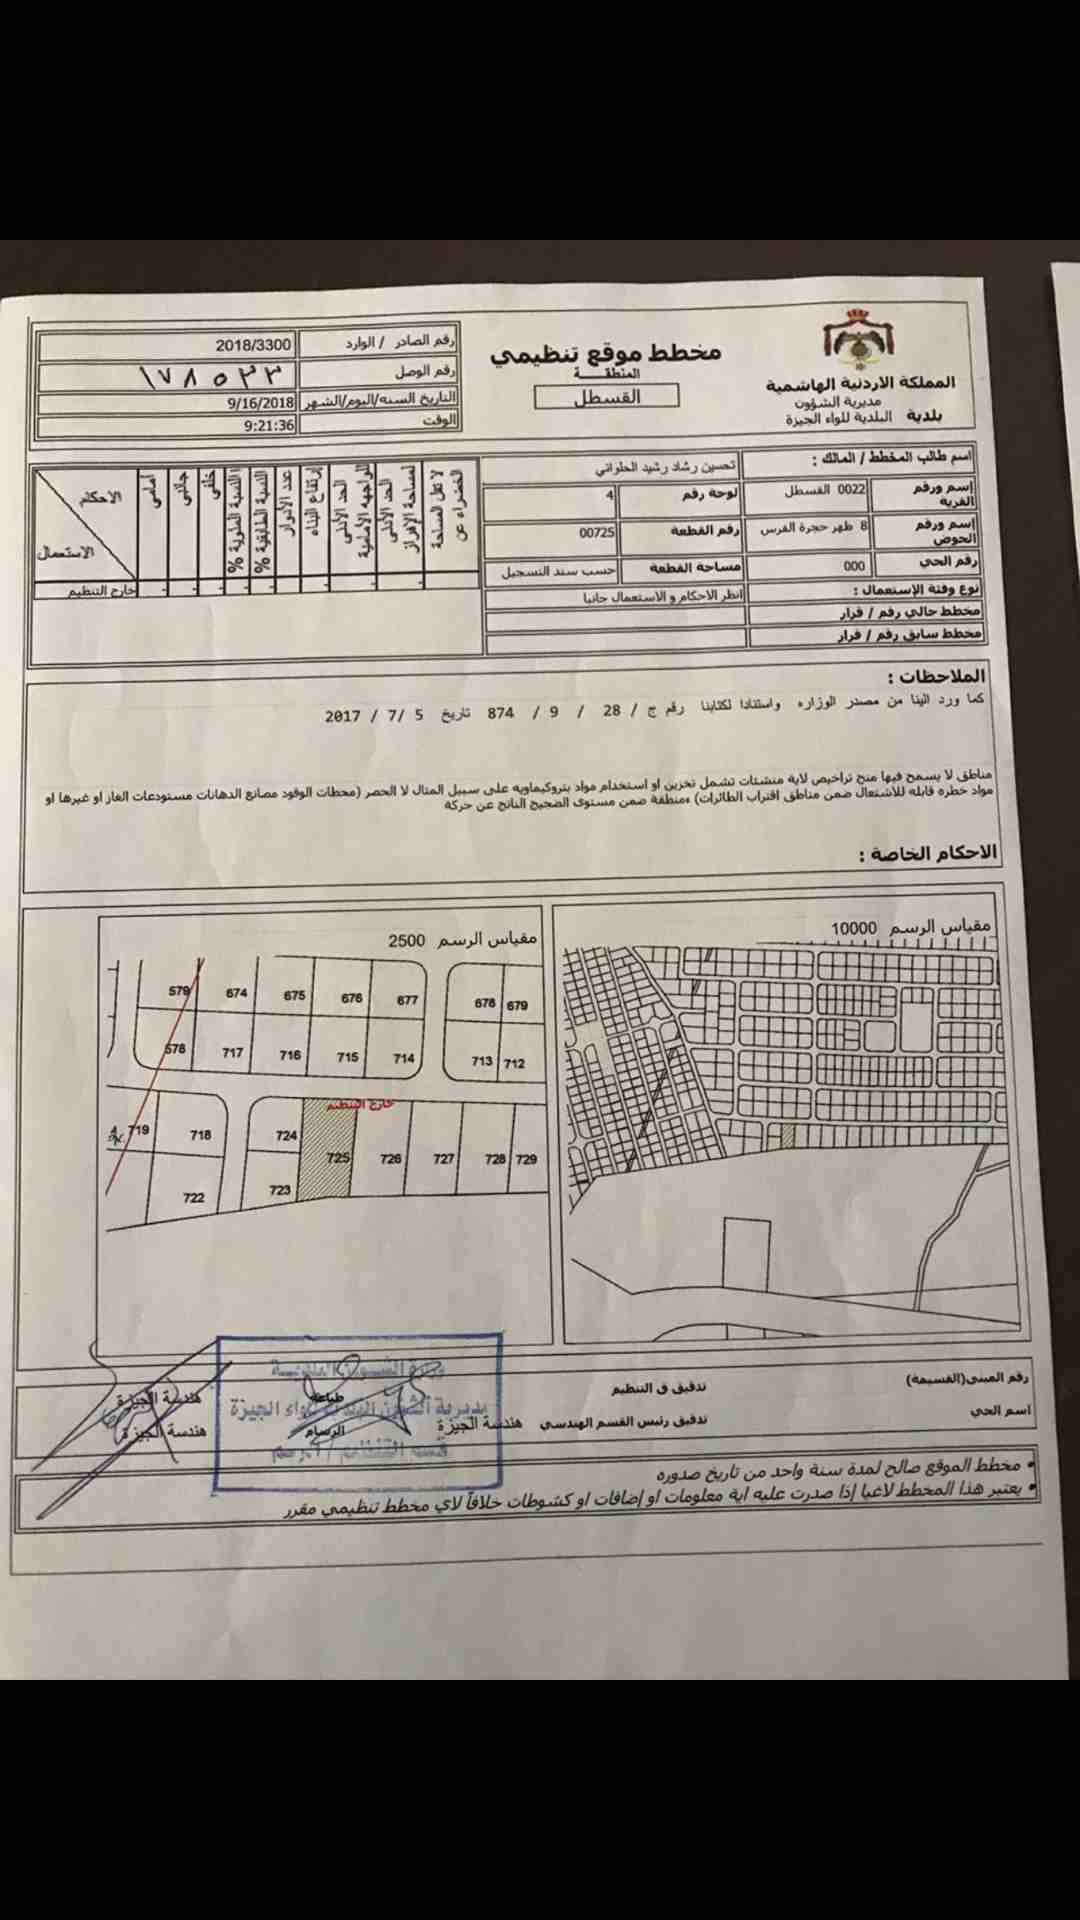 المملكة الاردنية الهاشمية
مديرية الشؤون
بلدية البلدية للواء الجيزة
مخطط موقع تنظيمي
المنطقة
القسطل
رقم الصادر / الوارد 2018/3300
رقم الوصل ١٧٨٥٣٣
التاريخ السنه/اليوم/الشهر 9/16/2018
الوقت 9:21:36
اسم طالب المخطط / المالك : تحسين رشاد رشيد الحلواني
إسم ورقم القرية 0022 القسطل لوحة رقم 4
إسم ورقم الحوض 8 ظهر حجرة الفرس رقم القطعة 00725
رقم الحي 000 مساحة القطعة حسب سند التسجيل
نوع وفئة الإستعمال : انظر الاحكام و الاستعمال جانبا
مخطط حالي رقم / قرار
مخطط سابق رقم / قرار
الاحكام
الاستعمال
أمامي
جانبي
خلفي
النسبة المئوية %
النسبة الطابقية %
عدد الأدوار
إرتفاع البناء
الحد الأدنى للواجهة الأمامية
الحد الأدنى لمساحة الإفراز
لا تقل المساحة الخضراء عن
خارج التنظيم - - - - - - - - - -
الملاحظات :
كما ورد الينا من مصدر الوزاره واستنادا لكتابنا رقم ج / 28 / 9 / 874 تاريخ 5 /7 / 2017
مناطق لا يسمح فيها منح تراخيص لاية منشئات تشمل تخزين او استخدام مواد بتروكيماويه على سبيل المثال لا الحصر (محطات الوقود مصانع الدهانات مستودعات الغاز او غيرها او
مواد خطره قابله للاشتعال ضمن مناطق اقتراب الطائرات) ،منطقة ضمن مستوى الضجيج الناتج عن حركة
الاحكام الخاصة :
مقياس الرسم 10000
مقياس الرسم 2500
579 674 675 676 677 678 679
578 717 716 715 714 713 712
خارج التنظيم
719 718 724 725 726 727 728 729
722 723
رقم المبنى(القسيمة)
تدقيق ق التنظيم
طباعة
هندسة الجيزة
اسم الحي
تدقيق رئيس القسم الهندسي
هندسة الجيزة
الرسام
هندسة الجيزة
• مخطط الموقع صالح لمدة سنة واحد من تاريخ صدوره
• يعتبر هذا المخطط لاغيا إذا صدرت عليه اية معلومات او إضافات او كشوطات خلافاً لاي مخطط تنظيمي مقرر